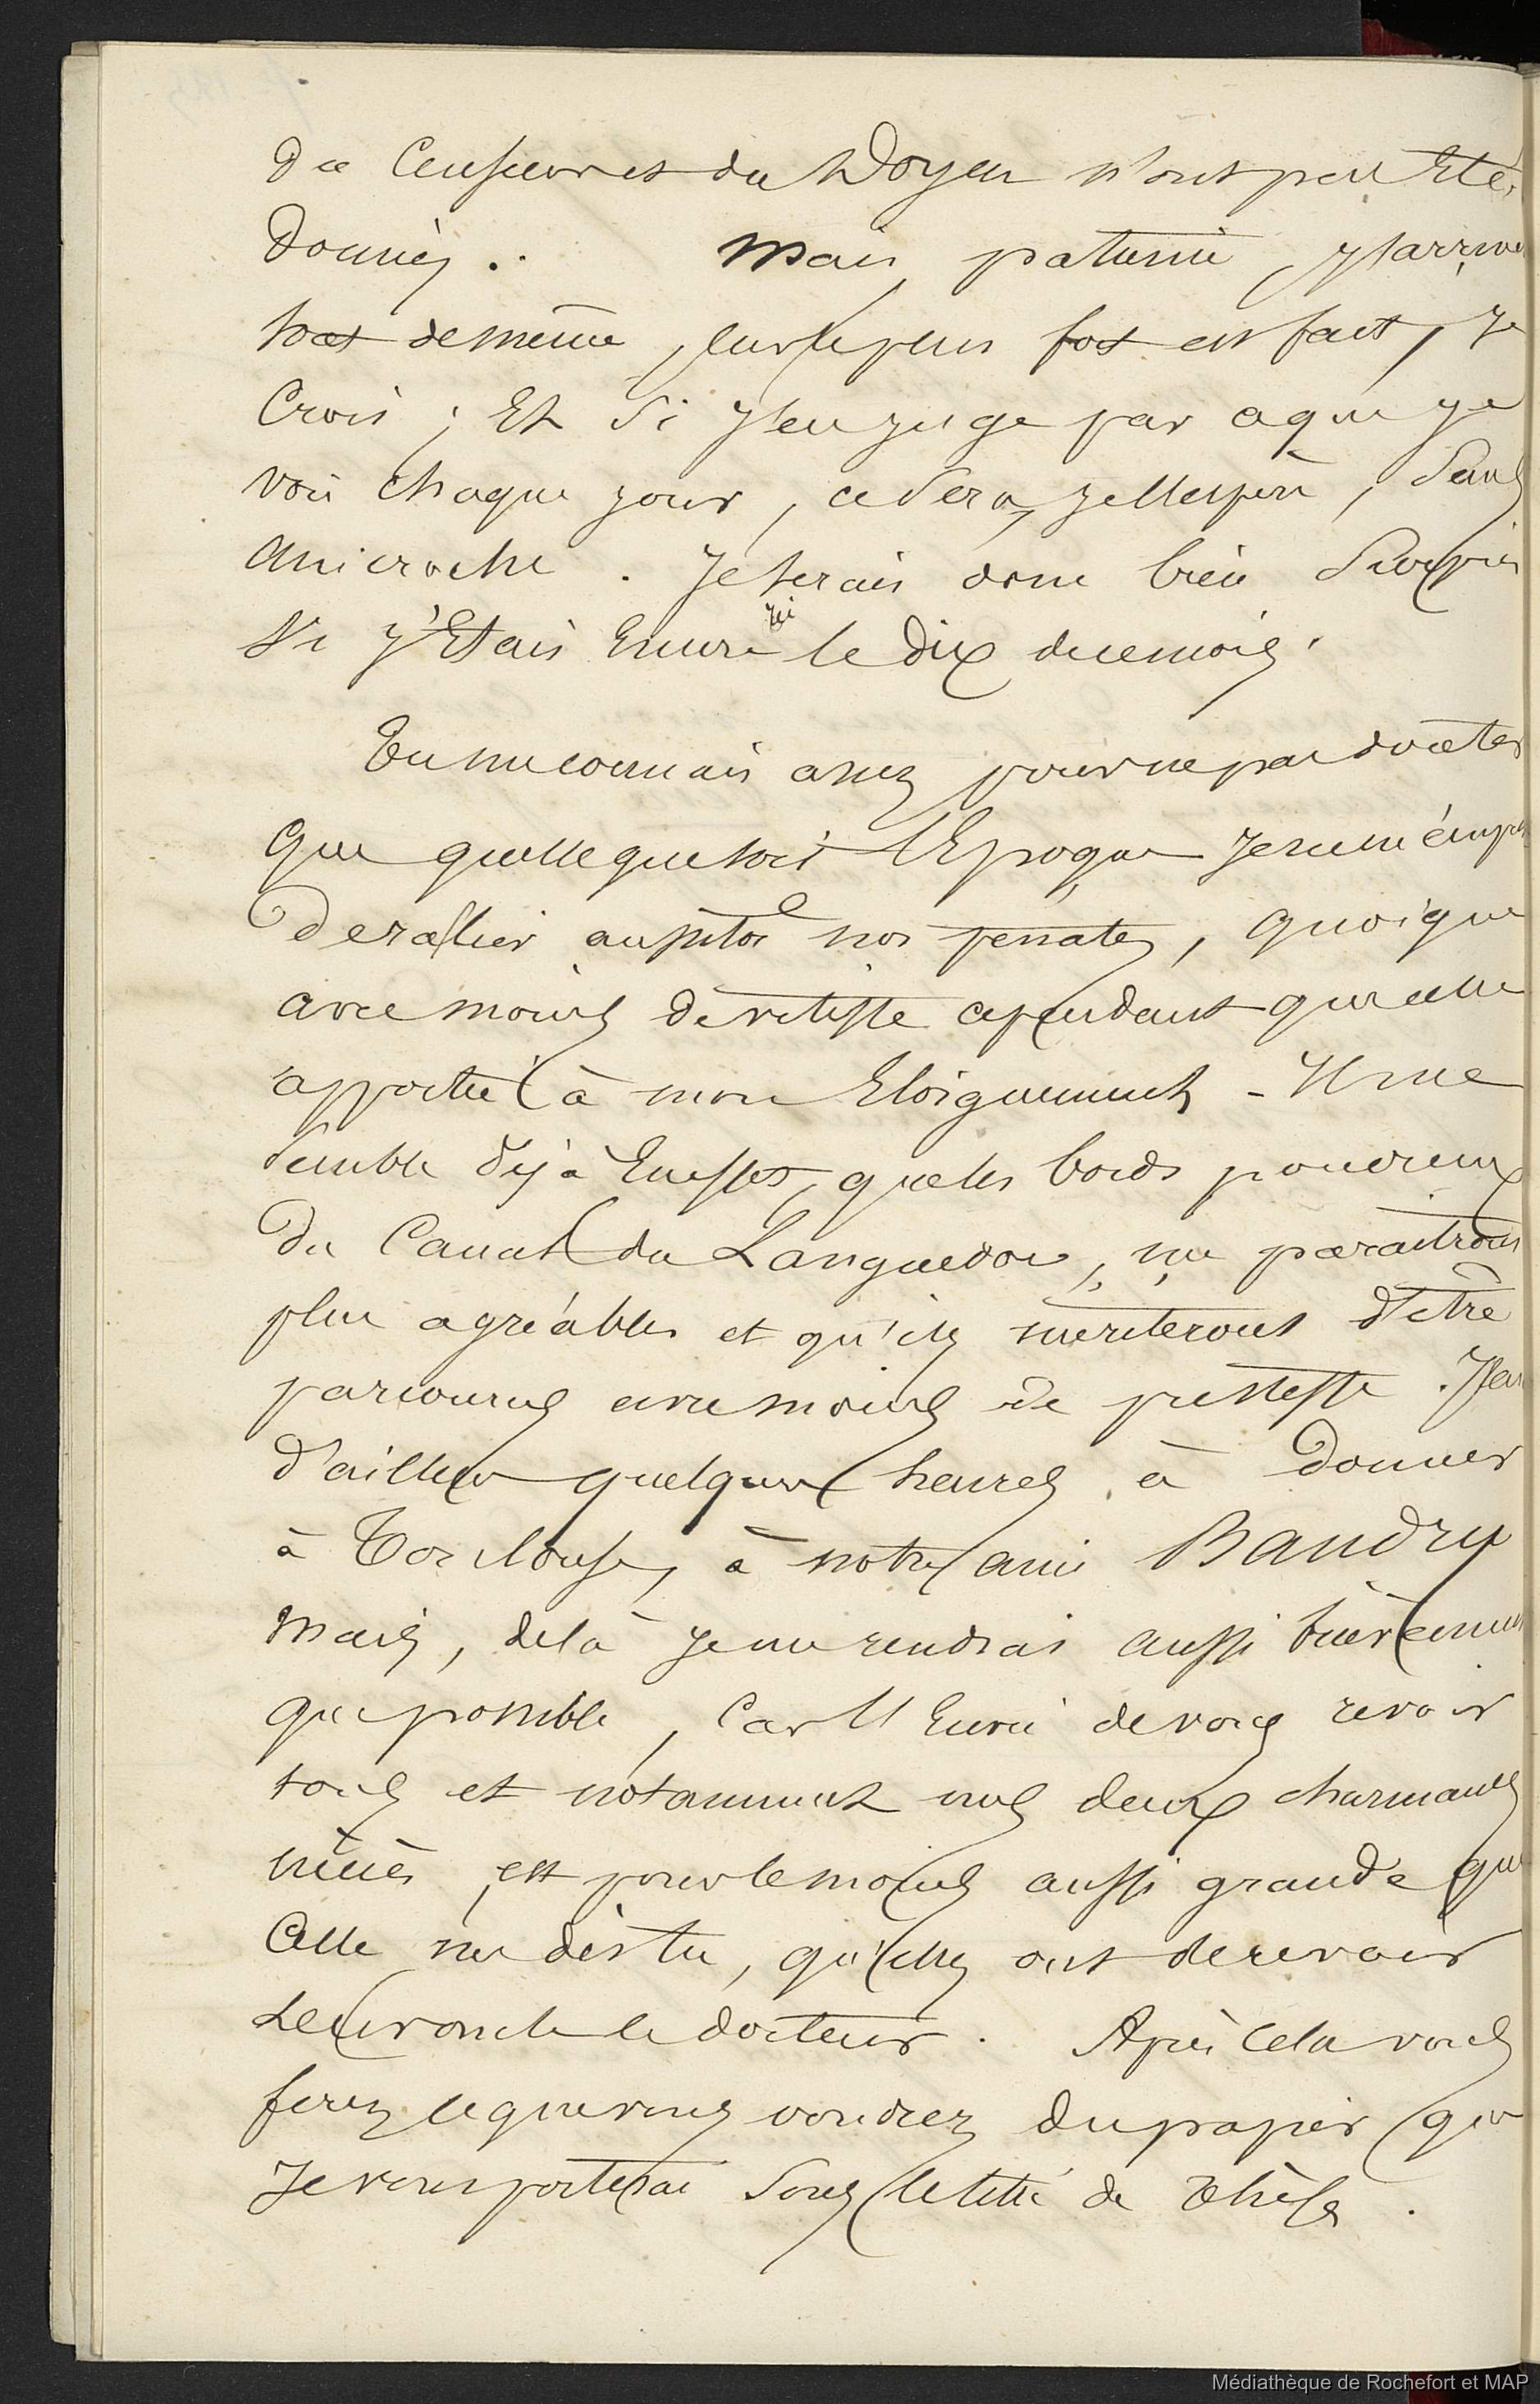 du Censeur et du Doyen n'ont pas été
donnés .. Mais patience j'y arrive
tout de même, car le plus fort est fait, je
Crois ; Et si j'en juge par ce que je
vois chaque jour, ce sera, je l'espère, sans
anicroche . Je serais donc bien surpris
si j'Etais Encore ici le dix de ce mois.
Tu me connais assez pour ne pas douter
que quelle que soit l'Epoque je ne m'empr
de rallier aussitot nos penates, quoique
avec moins de vitesse cependant que celle
apportée à mon Eloignement - Il me
semble déjà En effet, que les bords poudreux
du Canal du Languedoc, me paraitront
plus agréables et qu'ils meriteront d'être
parcourus avec moins de prestesse . J'ai
d'ailleurs quelques heures à Donner
à Toulouse, à notre ami Baudry
Mais, de là je me rendrai aussi brièvement
que possible, Car l'Envie de vous revoir
tous et notamment nos deux charmantes
nièces, est pour le moins aussi grande que
Celle me dis tu, qu'elles ont de revoir
Leur oncle le docteur . Après Cela vous
ferez ce que vous voudrez du papier que
Je vous porterai Sous le titre de Thèse .
Médiathèque de Rochefort et MAP